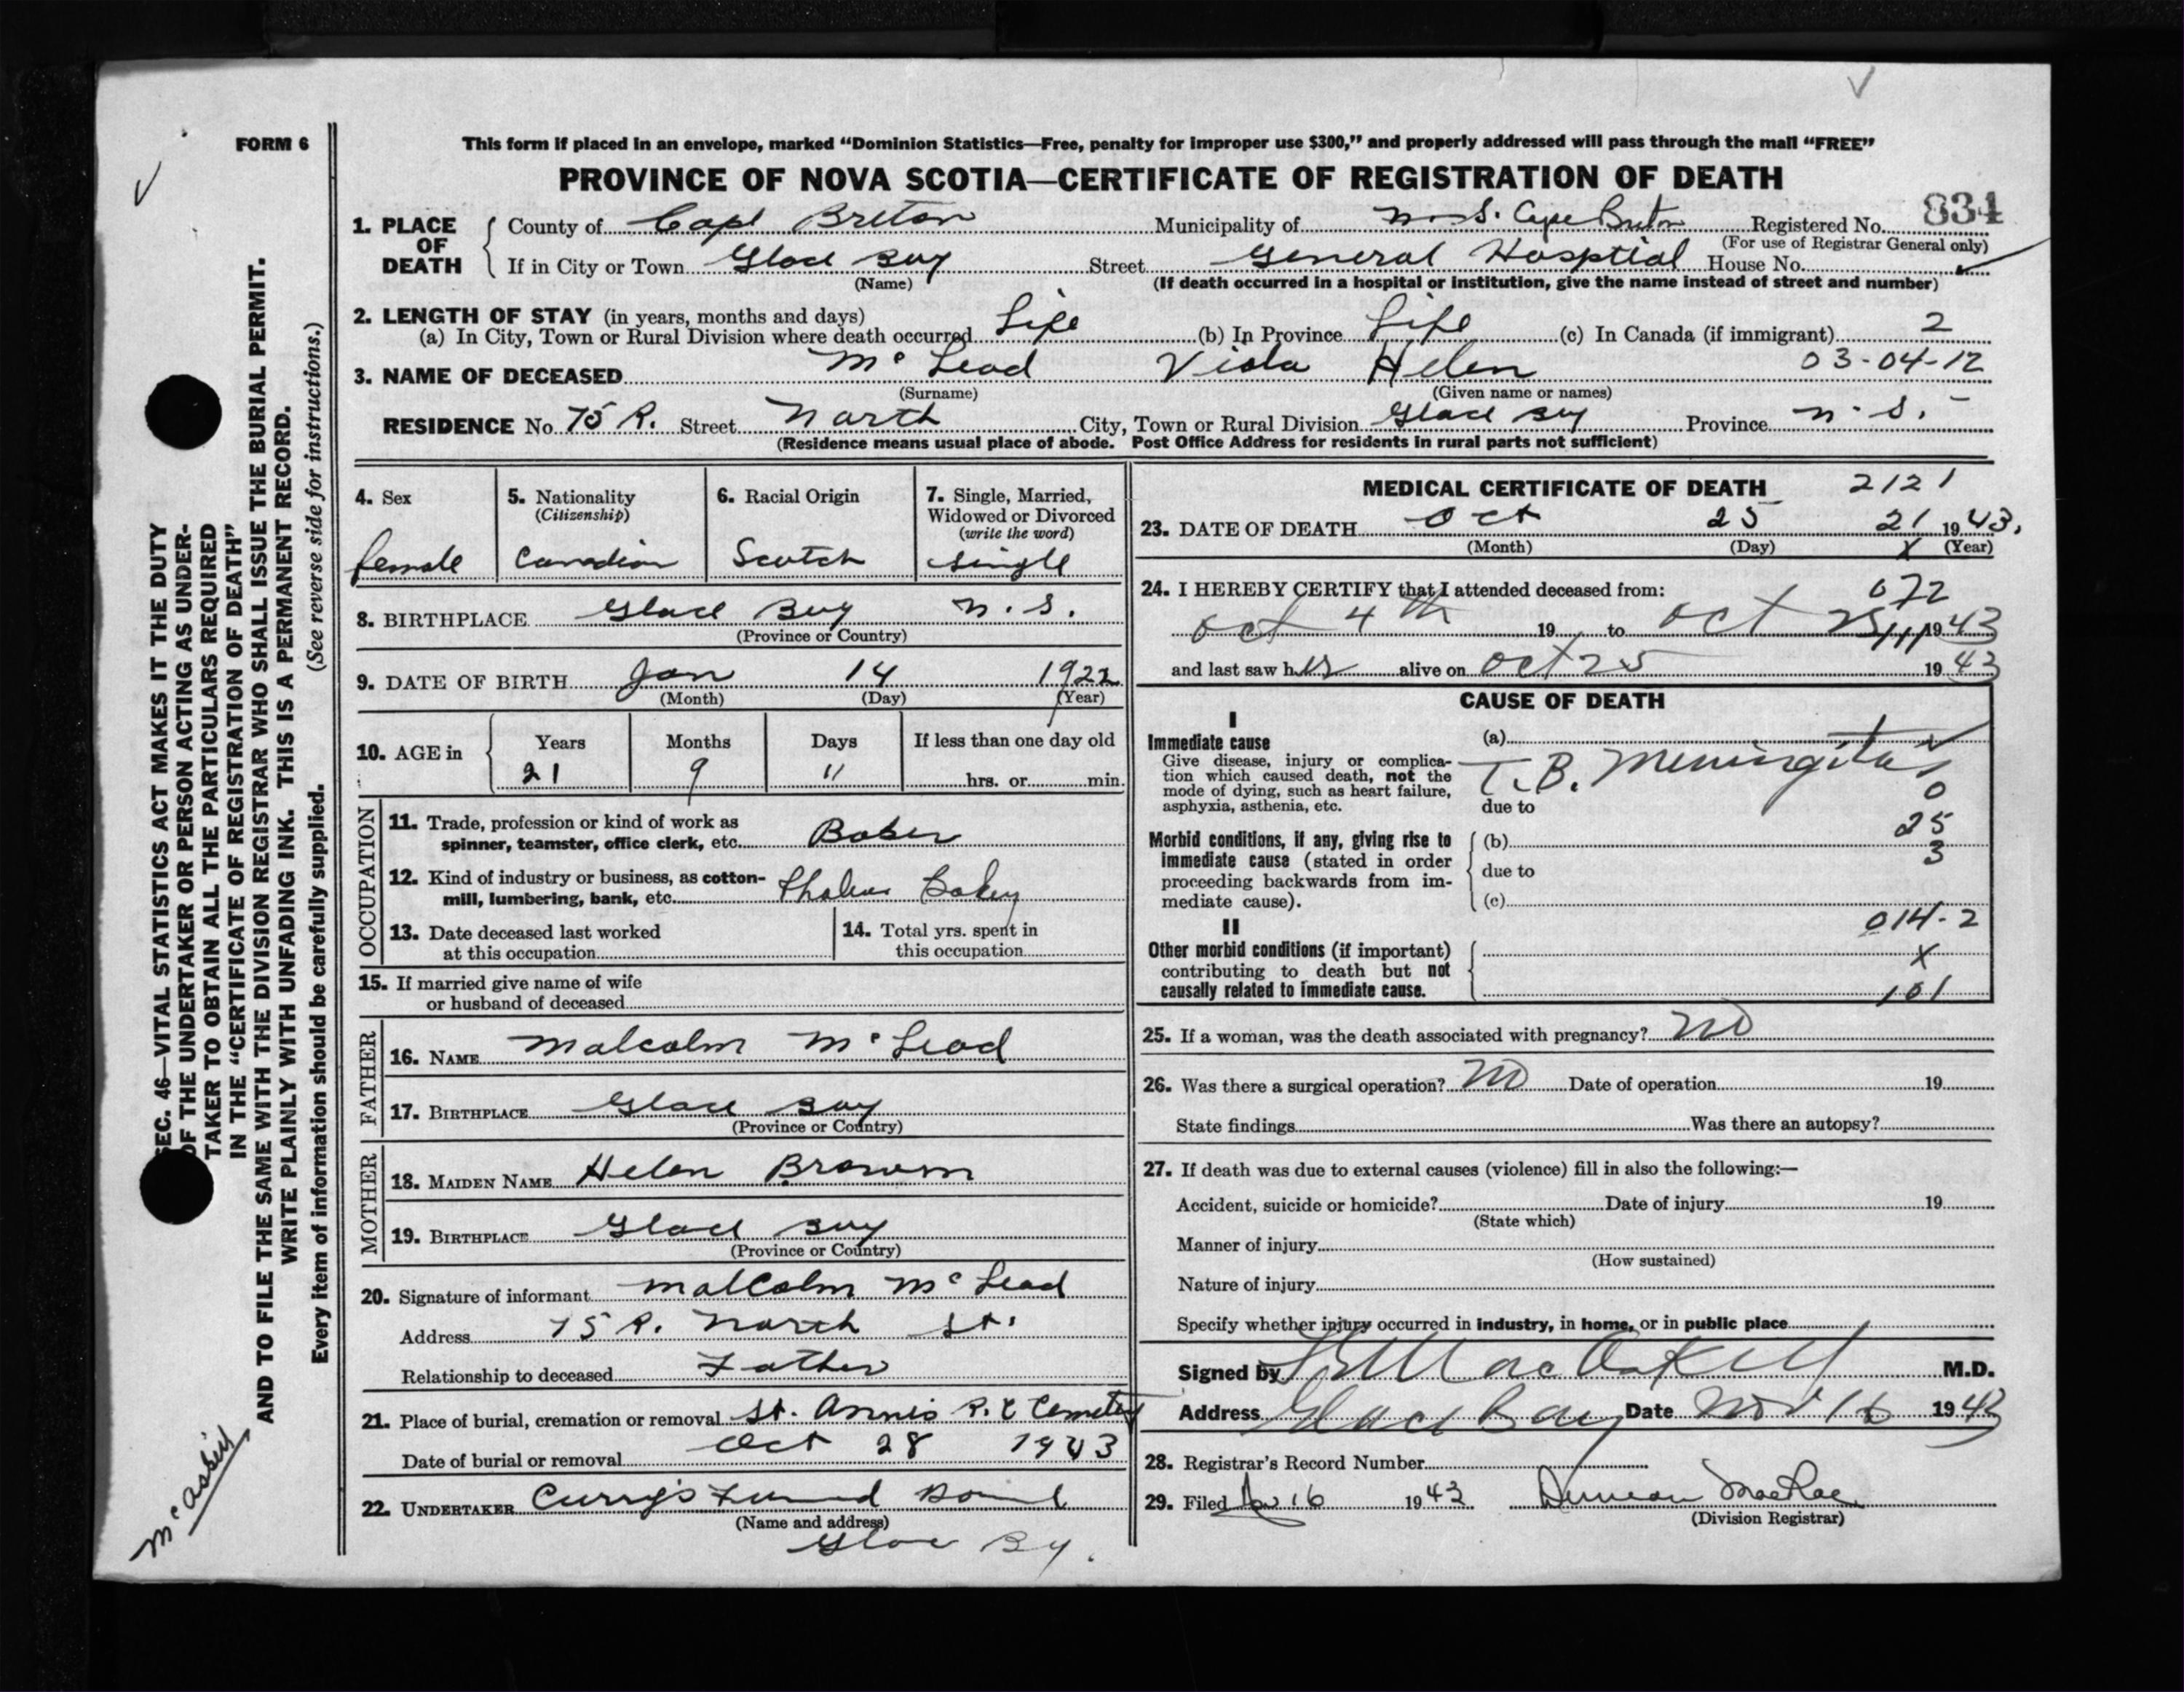 FORM 6
This form if placed in an envelope, marked “Dominion Statistics—Free, penalty for improper use $300,” and properly addressed will pass through the mail “FREE”
PROVINCE OF NOVA SCOTIA—CERTIFICATE OF REGISTRATION OF DEATH
834
1. PLACE OF DEATH
County of Cape Breton Municipality of N.S. Cape Breton Registered No.
(For use of Registrar General only)
If in City or Town Glace Bay Street General Hosptial House No.
(Name) (If death occurred in a hospital or institution, give the name instead of street and number)
2. LENGTH OF STAY (in years, months and days)
(a) In City, Town or Rural Division where death occurred Life (b) In Province Life (c) In Canada (if immigrant) 2
3. NAME OF DECEASED McLeod Viola Helen 03-04-12
(Surname) (Given name or names)
RESIDENCE No. 75 R. Street North City, Town or Rural Division Glace Bay Province N.S.
(Residence means usual place of abode. Post Office Address for residents in rural parts not sufficient)
4. Sex
female
5. Nationality
(Citizenship)
Canadian
6. Racial Origin
Scotch
7. Single, Married,
Widowed or Divorced
(write the word)
single
8. BIRTHPLACE Glace Bay N.S.
(Province or Country)
9. DATE OF BIRTH Jan 14 1922
(Month) (Day) (Year)
10. AGE in Years Months Days If less than one day old
21 9 11 hrs. or min.
OCCUPATION
11. Trade, profession or kind of work as
spinner, teamster, office clerk, etc. Baker
12. Kind of industry or business, as cotton-
mill, lumbering, bank, etc. Bakery
13. Date deceased last worked
at this occupation
14. Total yrs. spent in
this occupation
15. If married give name of wife
or husband of deceased
FATHER
16. NAME Malcolm McLeod
17. BIRTHPLACE Glace Bay
(Province or Country)
MOTHER
18. MAIDEN NAME Helen Brown
19. BIRTHPLACE Glace Bay
(Province or Country)
20. Signature of informant Malcolm McLeod
Address 75 R. North St.
Relationship to deceased Father
21. Place of burial, cremation or removal St. Annis R.C Cemetery
Date of burial or removal Oct 28 1943
22. UNDERTAKER Curry's Funeral Home
(Name and address)
Glace Bay.
MEDICAL CERTIFICATE OF DEATH 2121
23. DATE OF DEATH Oct 25 21 1943.
(Month) (Day) X (Year)
24. I HEREBY CERTIFY that I attended deceased from: 072
Oct 4th 19 to Oct 25 1943
and last saw her alive on Oct 25 1943
CAUSE OF DEATH
I
Immediate cause
Give disease, injury or complica-
tion which caused death, not the
mode of dying, such as heart failure,
asphyxia, asthenia, etc.
(a)
T.B. Meningitis
0
due to
25
Morbid conditions, if any, giving rise to
immediate cause (stated in order
proceeding backwards from im-
mediate cause).
(b) 3
due to
(c)
014-2
II
Other morbid conditions (if important)
contributing to death but not
causally related to immediate cause.
X
101
25. If a woman, was the death associated with pregnancy? No
26. Was there a surgical operation? No Date of operation 19
State findings Was there an autopsy?
27. If death was due to external causes (violence) fill in also the following:—
Accident, suicide or homicide? Date of injury 19
(State which)
Manner of injury
(How sustained)
Nature of injury
Specify whether injury occurred in industry, in home, or in public place
Signed by M.D.
Address Glace Bay Date Nov 16 1943
28. Registrar's Record Number
29. Filed 16 1943 Duncan MacRae
(Division Registrar)
SEC. 46—VITAL STATISTICS ACT MAKES IT THE DUTY
OF THE UNDERTAKER OR PERSON ACTING AS UNDER-
TAKER TO OBTAIN ALL THE PARTICULARS REQUIRED
IN THE “CERTIFICATE OF REGISTRATION OF DEATH”
AND TO FILE THE SAME WITH THE DIVISION REGISTRAR WHO SHALL ISSUE THE BURIAL PERMIT.
WRITE PLAINLY WITH UNFADING INK. THIS IS A PERMANENT RECORD.
Every item of information should be carefully supplied. (See reverse side for instructions.)